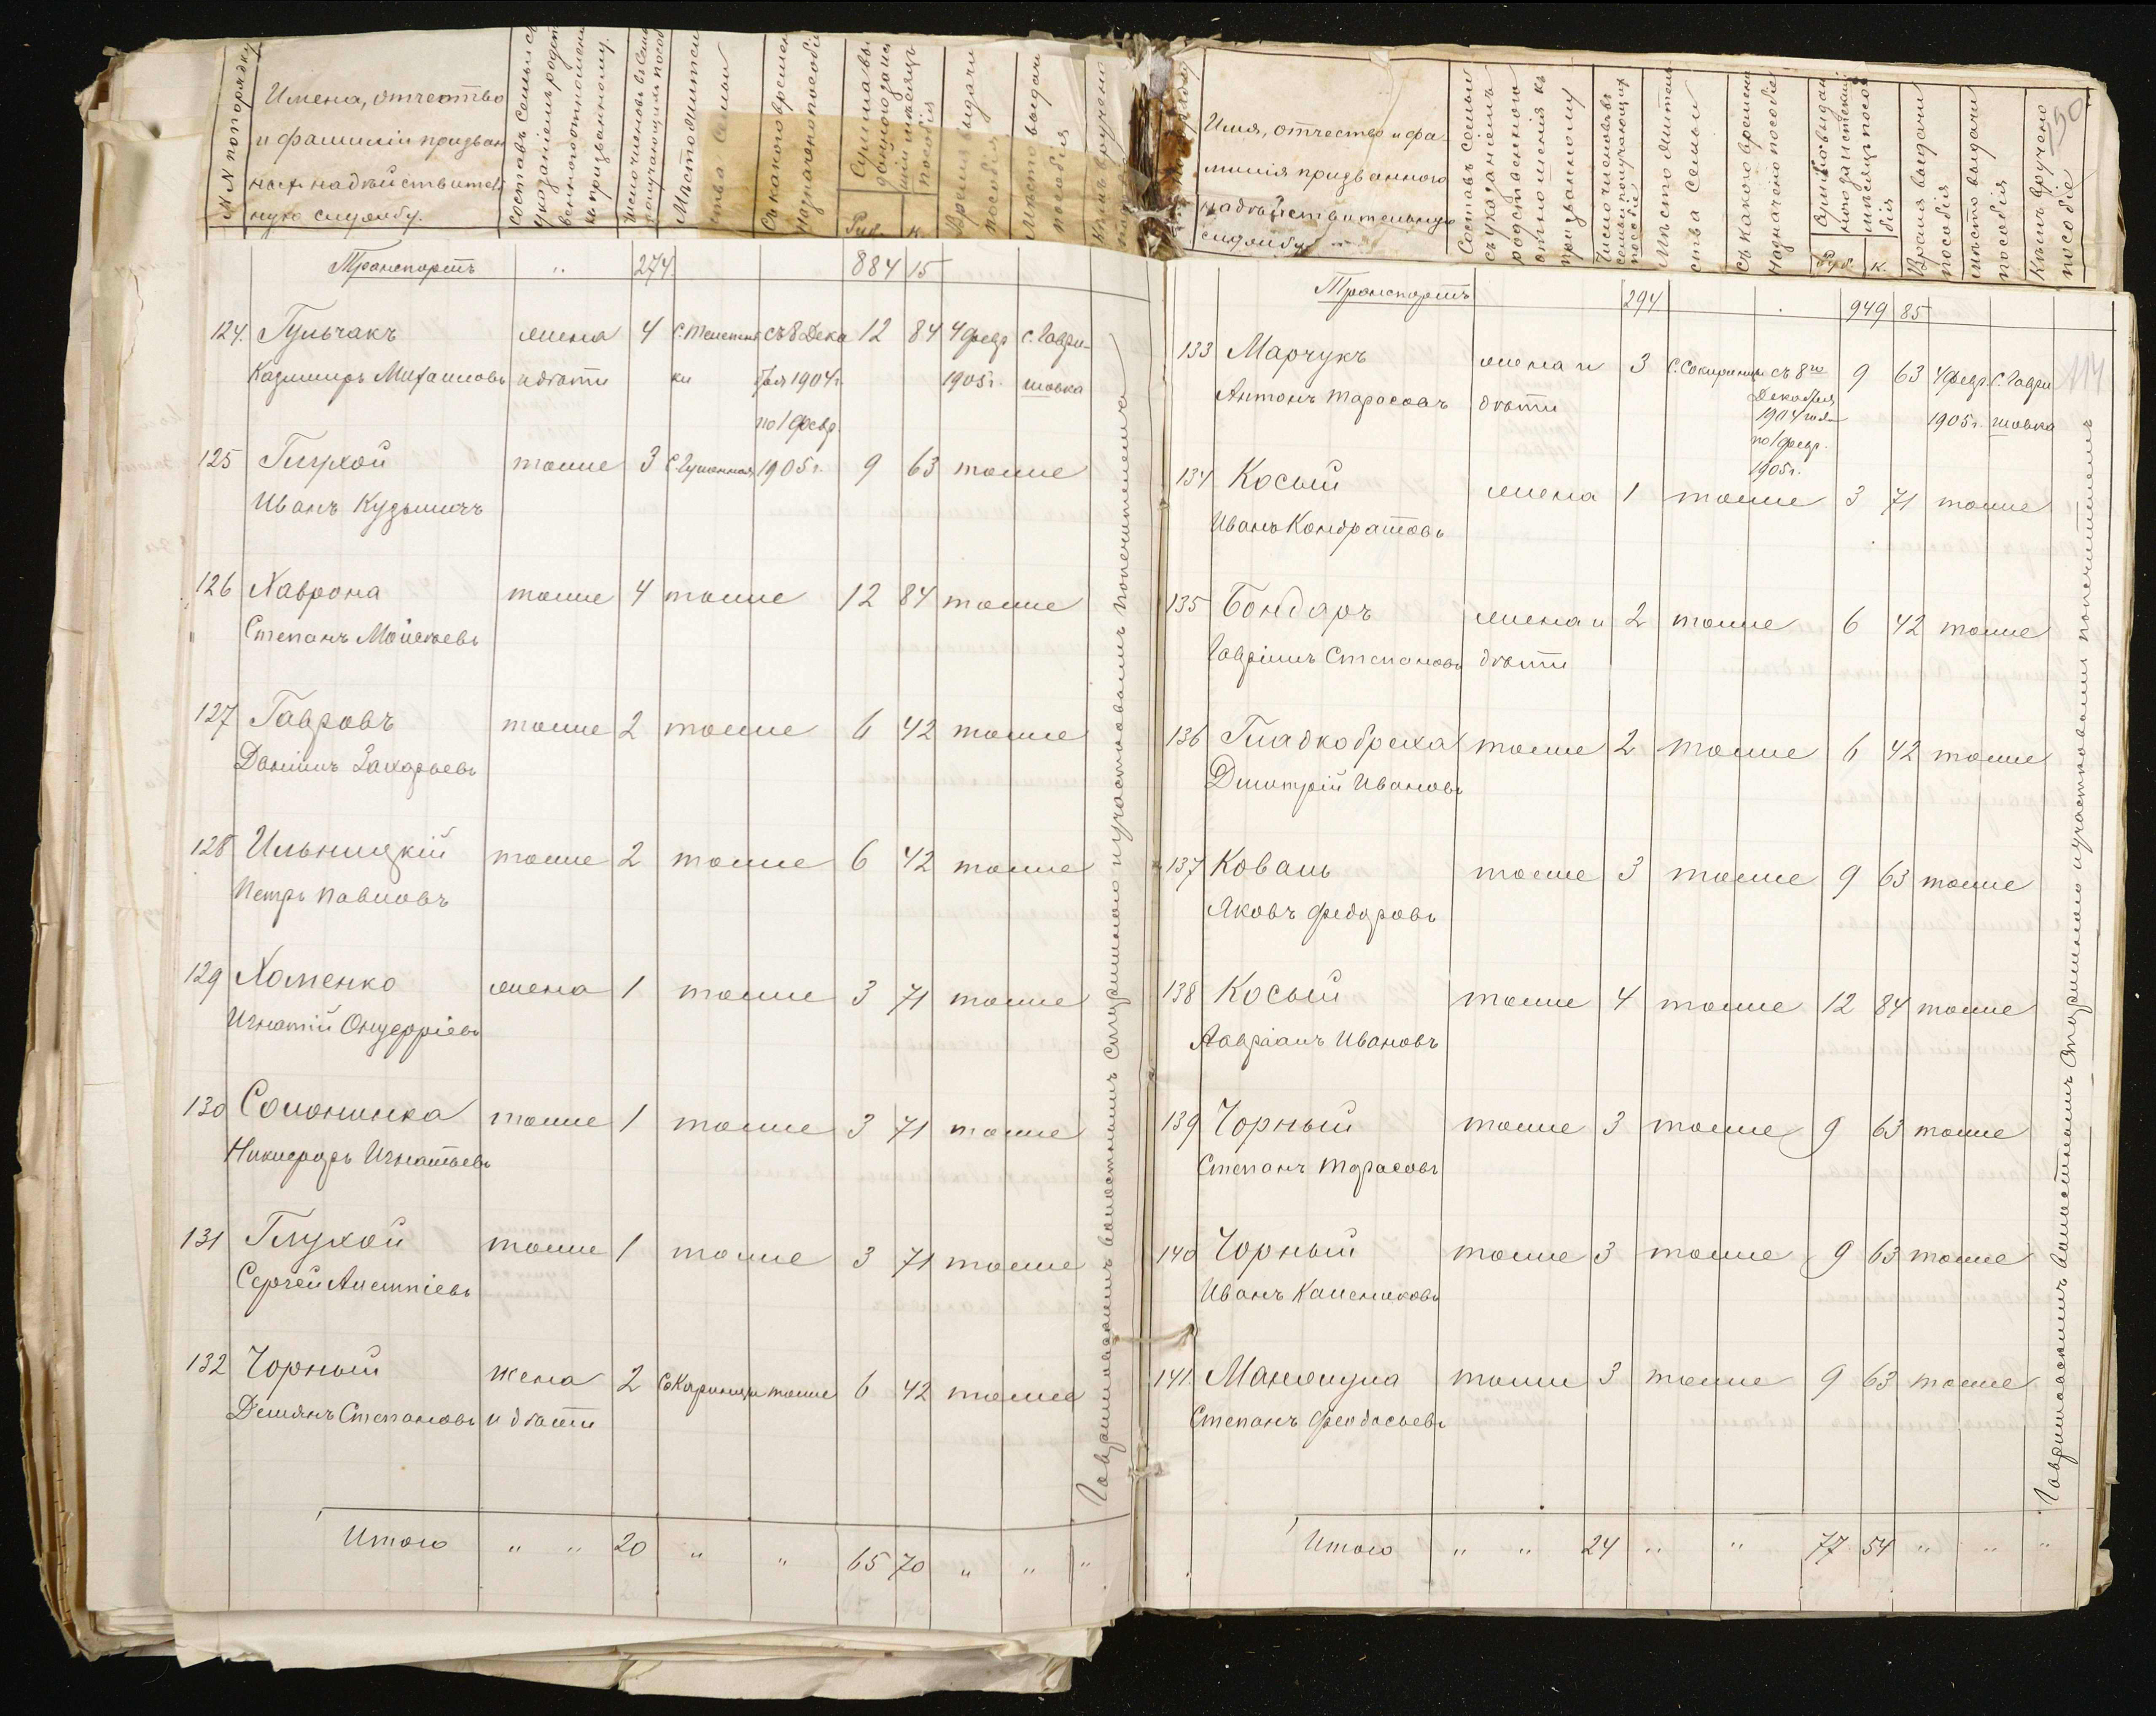 №№ по порядку
Имена, отчество
и фамилии призван
ных на дѣйствитель
ную службу.
Составъ семьи съ
указаніемъ родст
веннаго отношенія
къ призванному.
Число членовъ въ семьѣ
получающихъ пособ
Мѣсто житель
ства семьи
Съ какого времени
назначено пособіе
Сумма вы
даннаго за истек
шій мѣсяцъ
пособія
Руб. К.
Время выдачи
пособія
Мѣсто выдачи
пособія
Кѣмъ вручено
Транспортъ " 274. 884 15
124. Гульчакъ жена 4 съ 8 Дека 12 84 4 февр с. Гаври-
Казимиръ Михаиловъ и дѣти ки бря 1904г. 1905г. шовка
по 1 февр.
125 Глухой тоже 3 1905г. 9 63 тоже
Иванъ Кузьмичъ
126 Хаврона тоже 4 тоже 12 84 тоже
Степанъ Мойсеевъ
127 Гавровъ тоже 2 тоже 6 42 тоже
Даніилъ Захарьевъ
128 Ильницкій тоже 2 тоже 6 42 тоже
Петръ Павловъ
129 Хоменко жена 1 тоже 3 71 тоже
Игнатій Онуфріевъ
130 Солонинка тоже 1 тоже 3 71 тоже
Никифоръ Игнатьевъ
131 Глухой тоже 1 тоже 3 71 тоже
Сергей
132 Чорный жена 2 Сокиринцы тоже 6 42 тоже
Демянъ Степановъ и дѣти
Итого " " 20 " " 65 70 " " "
Гавришовскимъ волостнымъ старшиною и участковымъ попечителемъ
Имя, отчество и фа-
милія призваннаго
на дѣйствительную
службу
Составъ семьи
съ указаніемъ
родственнаго
отношенія къ
призванному
Число членовъ
семьи получающихъ
пособіе
Мѣсто житель
ства семьи
Съ какого времени
назначено пособіе
Сумма выдан
ного за истекшій
мѣсяцъ посо
бія
Руб. К.
Время выдачи
пособія
Мѣсто выдачи
пособія
Кѣмъ вручено
пособіе
50
114
Транспортъ 294. 949 85
133 Марчукъ жена и 3 С. Сокиринцы съ 8го 9 63 4 февр. с. Гаври
Антонъ Тарасовъ дѣти Декабря 1905г. шовка
1904 год
по 1 февр.
1905г.
134 Косый жена 1 тоже 3 71 тоже
Иванъ Кондратовъ
135 Бондаръ жена и 2 тоже 6 42 тоже
Гавріилъ Степановъ дѣти
136 Гладкобреха тоже 2 тоже 6 42 тоже
Дмитрій Ивановъ
137 Коваль тоже 3 тоже 9 63 тоже
Яковъ Федоровъ
138 Косый тоже 4 тоже 12 84 тоже
Ивановъ
139 Чорный тоже 3 тоже 9 63 тоже
Степанъ Тарасовъ
140 Чорный тоже 3 тоже 9 63 тоже
Иванъ Калениковъ
141 тоже 3 тоже 9 63 тоже
Степанъ Феодосьевъ
Итого " " 24 " " 77 54 " " "
Гавришовскимъ волостнымъ старшиною и участковымъ попечителемъ